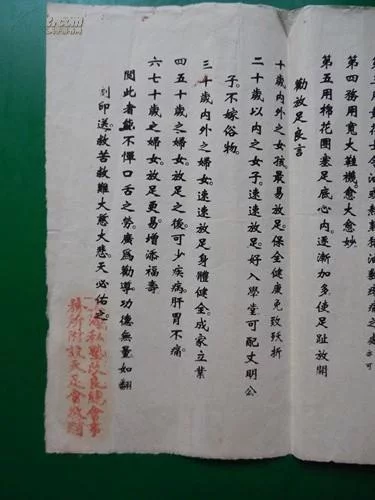 第四務用寬大鞋襪。愈大愈妙
第五用棉花團塞足底心內。逐漸加多使足趾放開
勸放足良言
十歲內外之女孩最易放足。保全健康免致殀折
二十歲以內之女子。速速放足。好入學堂可配文明公
子。不嫁俗物。
三十歲內外之婦女。速速放足身體健全。成家立業
四五十歲之婦女。放足之後。可少疾病。肝胃不痛。
六七十歲之婦女。放足更易增添福壽
閱此者能不憚口舌之勞。廣為勸導功德無量如翻
刻印送。救苦救難大慈大悲。天必佑之。
私塾改良總會事
務所附設天足會